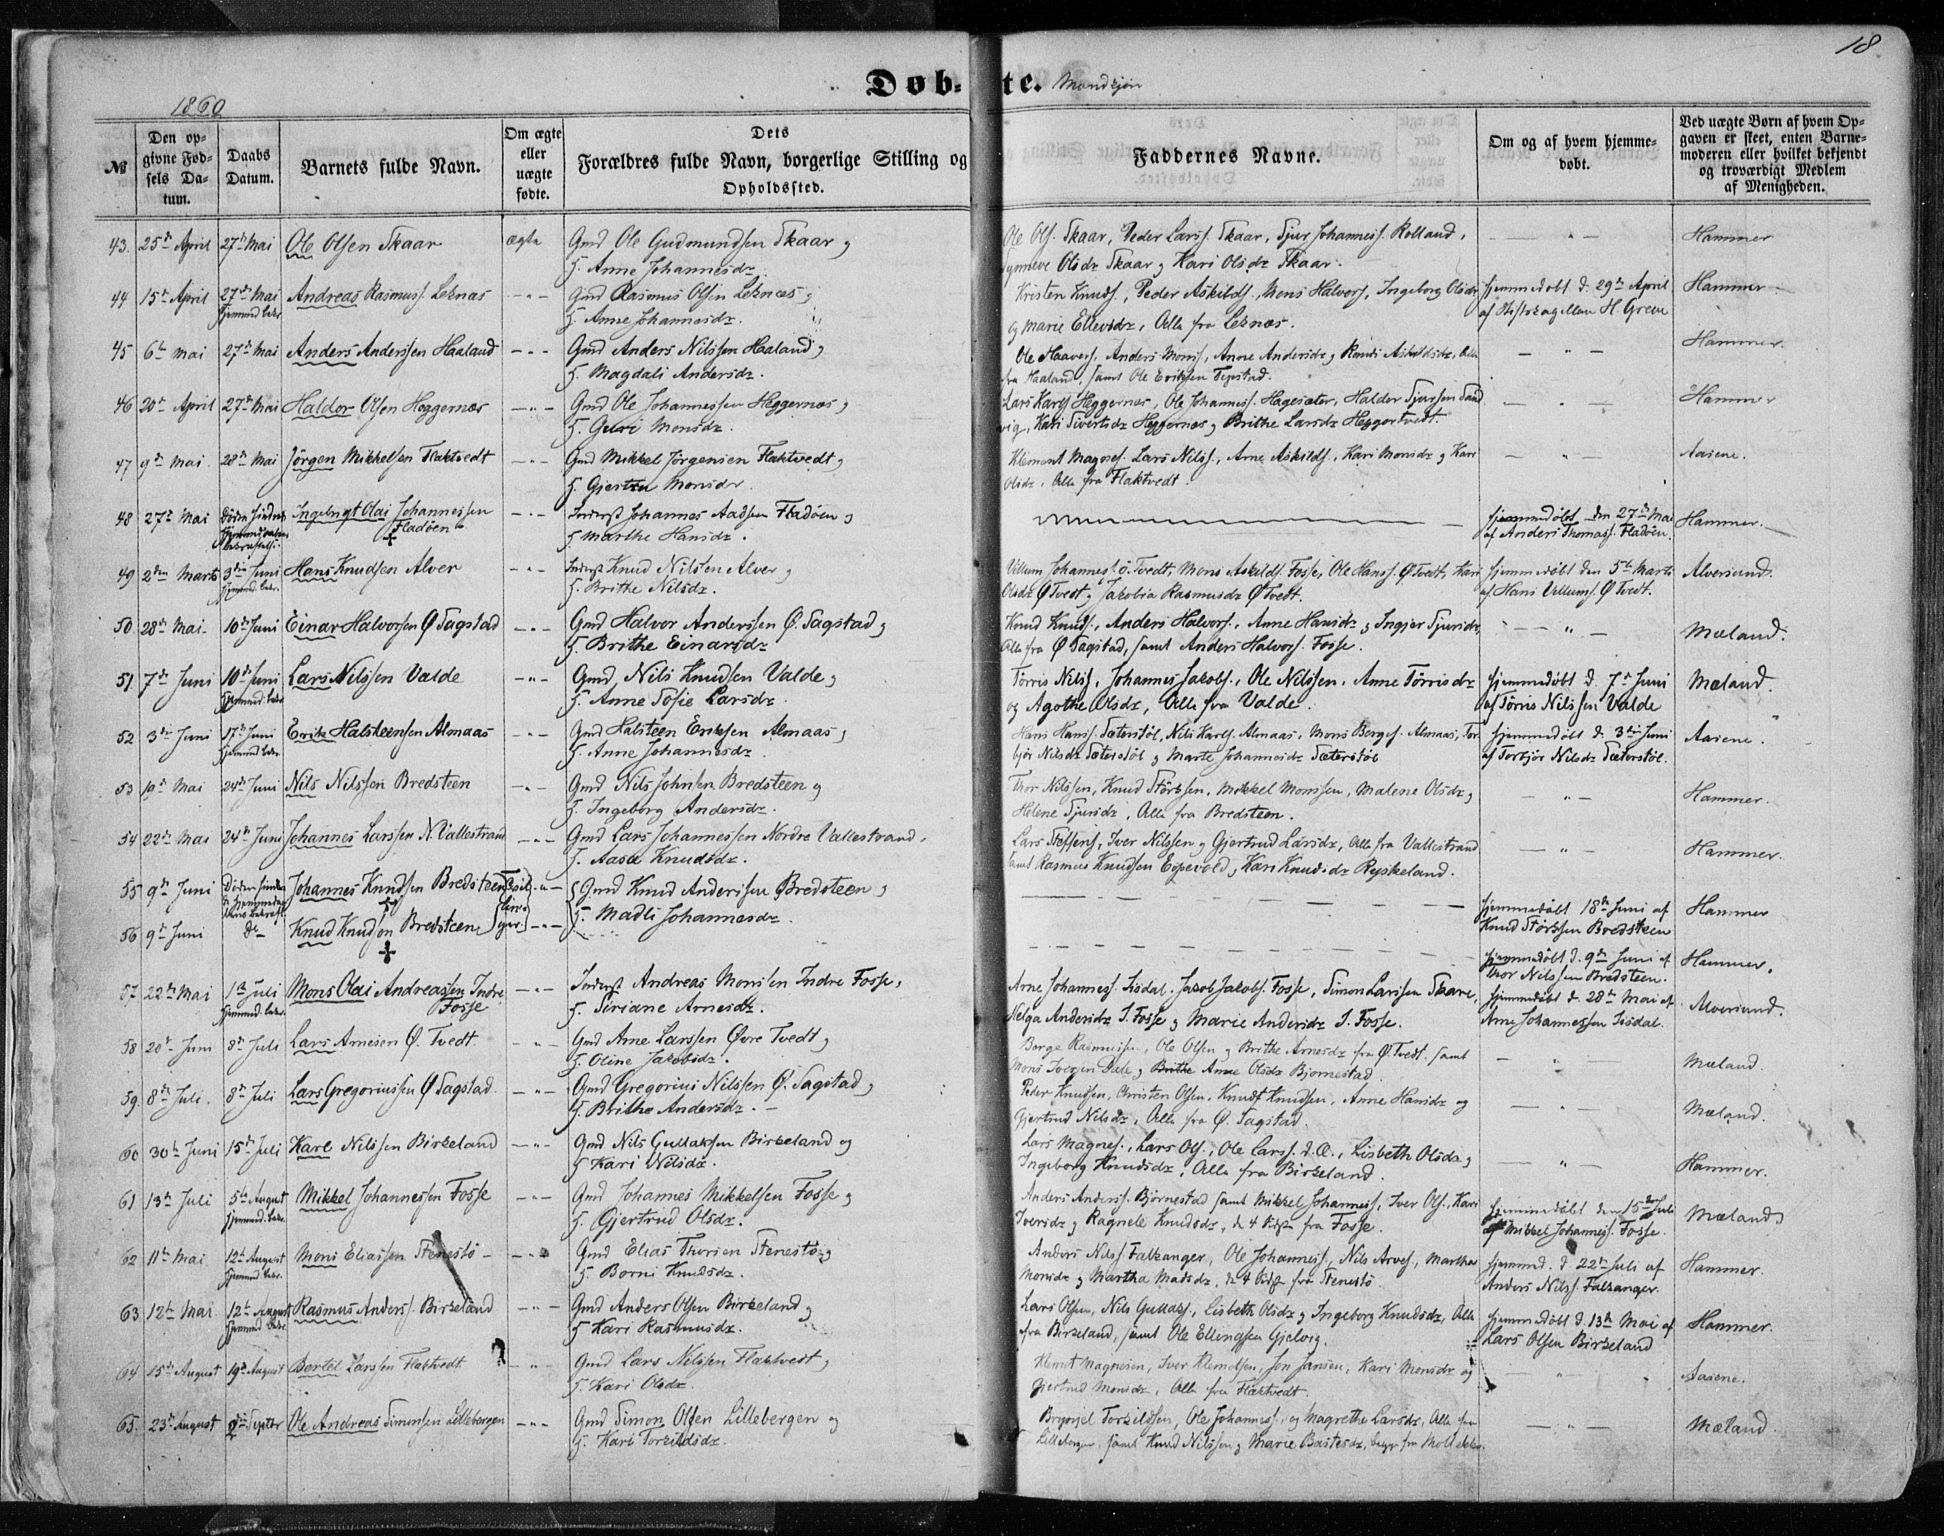 18
Døbte. Mandkjøn
1860
№
Den opgivne Fødsels Datum.
Daabs Datum.
Barnets fulde Navn.
Om ægte eller uægte fødte.
Dets Forældres fulde Navn, borgerlige Stilling og Opholdssted.
Faddernes Navne.
Om og af hvem hjemmedøbt.
Ved uægte Børn af hvem Opgaven er skeet, enten Barnemoderen eller hvilket bekjendt og troværdigt Medlem af Menigheden.
43. 25de April 27de Mai Ole Olsen Skaar ægte Gmd Ole Gudmundsen Skaar og Ole Ols. Skaar, Peder Larss. Skaar, Sjur Johanness. Rolland, — " — Hammer
H. Anne Johannesdr. Synneve Olsdr Skaar og Kari Olsdr Skaar.
44 15de April 27de Mai Andreas Rasmuss. Leknæs — " — Gmd Rasmus Olsen Leknæs og Kristen Knuds., Peder Askilds., Mons Halvors., Ingeborg Olsdr hjemmedøbt d. 29de April Hammer
Hjemmed. bekr. H. Anne Johannesdr. og Marie Ellevsdr, Alle fra Leknæs. af Stiftskapellan H. Greve
45 6te Mai 27de Mai Anders Anderssen Haaland — " — Gmd Anders Nilssen Haaland og Ole Haavors., Anders Monss., Anne Andersdr og Randi Askildsdr, Alle — " — Hammer.
H. Magdali Andersdr. fra Haaland, samt Ole Eriksen Tepstad.
46 20de April 27de Mai Haldor Olsen Heggernæs — " — Gmd Ole Johannessen Heggernæs og Lars Karls. Heggernæs, Ole Johanness. Hagesæter, Haldor Sjursen Sand — " — Hammer
H. Guri Monsdr. vig, Kari Sivertsdr Heggernæs og Brithe Larsdr Heggertvedt.
47 9de Mai 28de Mai Jörgen Mikkelsen Flaktvedt — " — Gmd Mikkel Jörgensen Flaktvedt og Klemont Magnes. Lars Nilss., Arne Askilds., Kari Monsdr og Kari — " — Aasene.
H. Gjertru Monsdr. Olsdr. Alle fra Flaktvedt.
48 27de Mai Döden hindrede Hjemmedaabens bekræftelse. Ingebrigt Olai Johannessen Fladöen — " — Inderst Johannes Aadsen Fladöen og hjemmedøbt den 27de Mai Hammer.
H. Marthe Hansdr. af Anders Thomass. Fladöen.
49 2den Marts 3die Juni Hans Knudsen Alver — " — Inderst Knud Nilssen Alver og Villum Johanness. Ö. Tvedt, Mons Askilds. Fosse, Ole Hanss. Ø Tvedt, Kari hjemmedøbt den 5te Marts Alversund.
Hjemmed. bekr. H. Brithe Nilsdr. Olsdr Ø Tvedt og Jakobia Rasmusdr Ø Tvedt. af Hans Villums. Ø Tvedt.
50 28de Mai 10de Juni Einar Halvorsen Ø Sagstad — " — Gmd Halvor Anderssen Ø. Sagstad og Knud Knuds., Anders Halvors., Anne Hansdr og Ingjer Sjursdr, — " — Mæland.
H. Brithe Einarsdr Alle fra Ø Sagstad, samt Anders Halvors. Fosse.
51 7de Juni 10de Juni Lars Nilssen Valde — " — Gmd Nils Knudsen Valde og Törris Nilss., Johannes Jakobs., Ole Nilssen, Anne Törrisdr hjemmedøbt d. 7de Juni Mæland.
Hjemmed. bekr. H. Anne Sofie Larsdr. og Agothe Olsdr, Alle fra Valde. af Törris Nilssen Valde
52 3die Juni 17de Juni Erik Halsteensen Almaas — " — Gmd Halsteen Eriksen Almaas og Hans Hanss. Sæterstöl, Nils Karls. Almaas, Mons Berges. Almaas, Tor hjemmedøbt d. 3die Juni Aasene.
Hjemmed. bekr. H. Anne Johannesdr. björ Nilsdr Sæterstöl og Marte Johannesdr Sæterstöl af Torbjör Nilsdr Sæterstöl.
53 19de Mai 24de Juni Nils Nilssen Bredsteen — " — Gmd Nils Johnsen Bredsteen og Thor Nilssen, Knud Störkssen, Mikkel Monssen, Malene Olsdr og — " — Hammer.
H. Ingeborg Andersdr. Helene Sjursdr, Alle fra Bredsteen.
54 22de Mai 24de Juni Johannes Larssen N. Vallestrand — " — Gmd Lars Johannessen Nordre Vallestrand, Lars Steffens., Iver Nilssen og Gjertrud Larsdr, Alle fra Vallestrand — " — Hammer.
H. Aasa Knudsdr. samt Rasmus Knudsen Espevold, Kari Knudsdr Ryskeland.
55 9de Juni Döden hindrede hjemmedaabens bekræft. Johannes Knudsen Bredsteen Tvillinger — " — Gmd Knud Anderssen Bredsteen og hjemmedøbt 18de Juni af Hammer
H. Madli Johannesdr. Knud Störkssen Bredsteen
56 9de Juni do Knud Knudsen Bredsteen — " — hjemmedøbt d. 9de Juni af Hammer.
Thor Nilssen Bredsteen.
57 22de Mai 1ste Juli Mons Olai Andreassen Indre Fosse — " — Inderst Andreas Monssen Indre Fosse, Arne Johanness. Issdal, Jacob Jakobs. Fosse, Simon Larssen Skare, hjemmedøbt d. 28de Mai af Alversund.
Hjemmed. bekr. H. Siriane Arnesdr. Helga Andersdr I. Fosse og Marie Andersdr I. Fosse. Arne Johannessen Isdal.
58 20de Juni 8de Juli Lars Arnesen Ø. Tvedt — " — Gmd Arne Larssen Øvre Tvedt og Berge Rasmussen, Ole Olsen og Brithe Arnesdr fra Ø. Tvedt, samt — Mæland.
H. Oline Jakobsdr. Mons Iversen Dale og Anne Olsdr Bjornestad.
59. 8de Juli. 8de Juli Lars Gregoriussen Ø Sagstad. — " — Gmd Gregorius Nilssen Ø. Sagstad og Peder Knudsen, Christen Olsen, Knud Knudsen, Anne Hansdr og — " — Mæland.
H. Brithe Andersdr. — Gjertrud Nilsdr, Alle fra Ø. Sagstad.
60 30te Juni 15de Juli Karl Nilssen Birkeland — " — Gmd Nils Gullaksen Birkeland og Lars Magnes., Lars Ols., Ole Larss. d. Æ., Lisbeth Olsdr og — " — Hammer.
H. Kari Nilsdr. Ingeborg Knudsdr, Alle fra Birkeland.
61 13de Juli 5te August Mikkel Johannessen Fosse — " — Gmd Johannes Mikkelsen Fosse og Anders Anderss. Björnestad samt Mikkel Johanness., Iver Ols., Kari hjemmedøbt den 15de Juli Mæland
Hjemmed. bekr. H. Gjertrud Olsdr. Iversdr og Ragnele Knudsdr, de 4 sidste fra Fosse. af Mikkel Johanness. Fosse.
62 11te Mai 12te August Mons Eliassen Stenestö — " — Gmd Elias Thorsen Stenestö og Anders Nilss Falkanger, Ole Johanness., Nils Arnes., Martha hjemmed. d. 22de Juli af Hammer.
Hjemmed. bekr. H. Borni Knudsdr. Monsdr og Martha Madsdr, de 4 sidste fra Stenestö. Anders Nilss. Falkanger.
63 12te Mai 12te August Rasmus Anders. Birkeland — " — Gmd Anders Olsen Birkeland og Lars Olsen, Nils Gullaks., Lisbeth Olsdr og Ingeborg Knudsdr, Alle hjemmedøbt d. 13de Mai af Hammer.
Hjemmed. bekr. H. Kari Rasmusdr. fra Birkeland, samt Ole Ellingsen Gjelvig. Lars Olsen Birkeland
64 15de August 19de August Bertel Larssen Flaktvedt — " — Gmd Lars Nilssen Flaktvedt, Klemet Magnesen, Iver Klemetsen, Jon Jansen, Kari Monsdr og Aasene.
H. Kari Olsdr. Gjertrud Monsdr, Alle fra Flaktvedt.
65. 23de August 2den Septbr Ole Andreas Simonsen Lillebergen — " — Gmd Simon Olsen Lillebergen og Brynjel Torkildsen, Ole Johanness. og Magrethe Larsdr, Alle fra — " — Mæland.
H. Kari Torkildsdr. Lillebergen, samt Knud Nilssen og Marie Bastesdr, begge fra